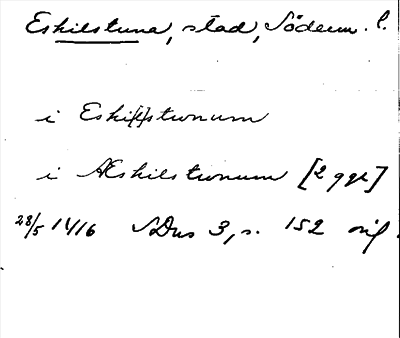 Eskilstuna, stad, Söderm. l.
i Eski[l]stunum
i Æskilstunum [2 ggr]
28/5 1416 SDns 3, s. 152 orig